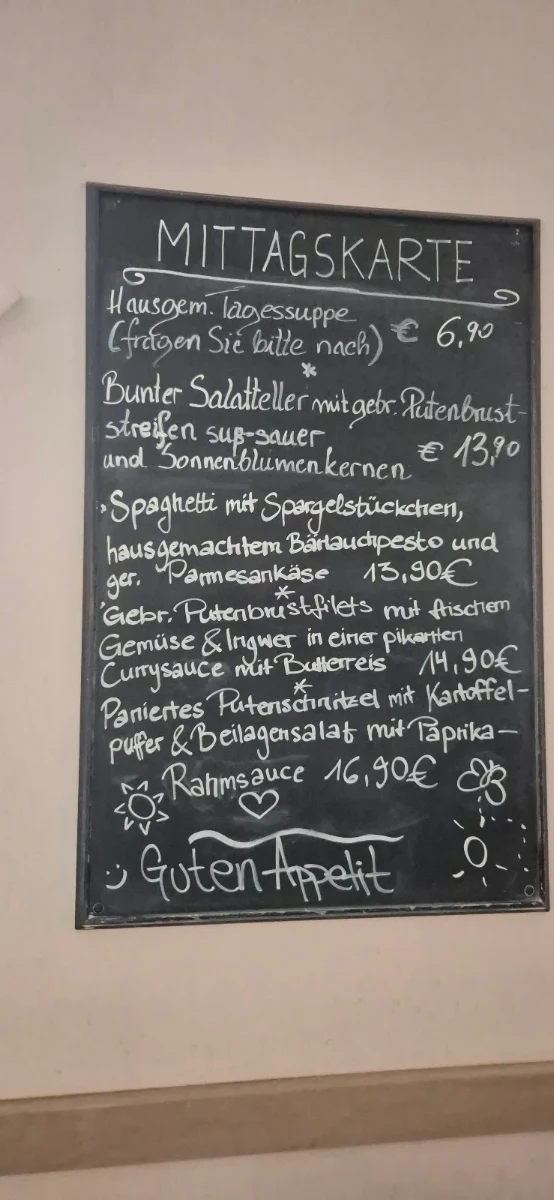 MITTAGSKARTE
Hausgem. Tagessuppe
(fragen Sie bitte nach) € 6,90
*
Bunter Salatteller mit gebr. Putenbrust-
streifen süß-sauer
und Sonnenblumenkernen € 13,90
Spaghetti mit Spargelstückchen,
hausgemachtem Bärlauchpesto und
ger. Parmesankäse 13,90€
*
Gebr. Putenbrustfilets mit frischem
Gemüse & Ingwer in einer pikanten
Currysauce mit Butterreis 14,90€
*
Paniertes Putenschnitzel mit Kartoffel-
puffer & Beilagensalat mit Paprika-
Rahmsauce 16,90€
:) Guten Appetit